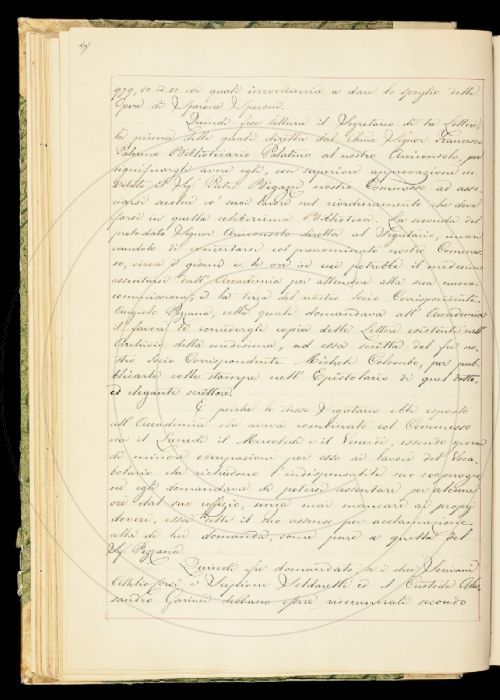 coi quali incomincia a dare lo spoglio delle
Opere di Sperone Speroni.
Quindi fece lettura il Segretario di tre Lettere,
la prima delle quali diretta dal Signor Francesco
Palermo Bibliotecario Palatino al nostro Arciconsolo, per
significargli avere egli, con superiore approvazione in-
vitato il Sig. nostro Commesso ad asso-
ciarsi seco lui ne' suoi lavori nel riordinamento che deve
farsi in quella celeberrima Biblioteca. La seconda del
prelodato Signor Arciconsolo diretta al Segretario, incari-
candolo di concertarsi col prenominato nostro Commes-
so, circa i giorni e le ore in cui potrebbe il medesimo
assentarsi dall'Accademia per attendere alla sua nuova
commissione; e la terza del nostro Socio Corrispondente
Angiolo Pezzana, colla quale domandava all'Accademia
il favore di concedergli copia delle Lettere esistenti nell'
Archivio della medesima, ad essa scritte dal fu no-
stro Socio Corrispondente Michele Colombo, per pub-
blicarle colle stampe nell'Epistolario di quel dotto,
ed elegante scrittore.
E poiché lo stesso Segretario ebbe esposto
all'Accademia che aveva combinati col Commesso
il Lunedì il Mercoledì e il Venerdì, essendo
di minore occupazione per esso ai lavori del Voca-
bolario che richiedono l'indispensabile sua cooperazione
ne egli domandava di potersi assentare per alcune
ore dal suo ufizio, senza mai mancare ai proprj
doveri, essa dette il suo assenso per acclamazione
alla di lui domanda, come pure a quella del
Sig. Pezzana.
Quindi fu domandato, se i due Scrivani
ed il Custode Ales-
sandro Garinei debbano essere rimunerati secondo